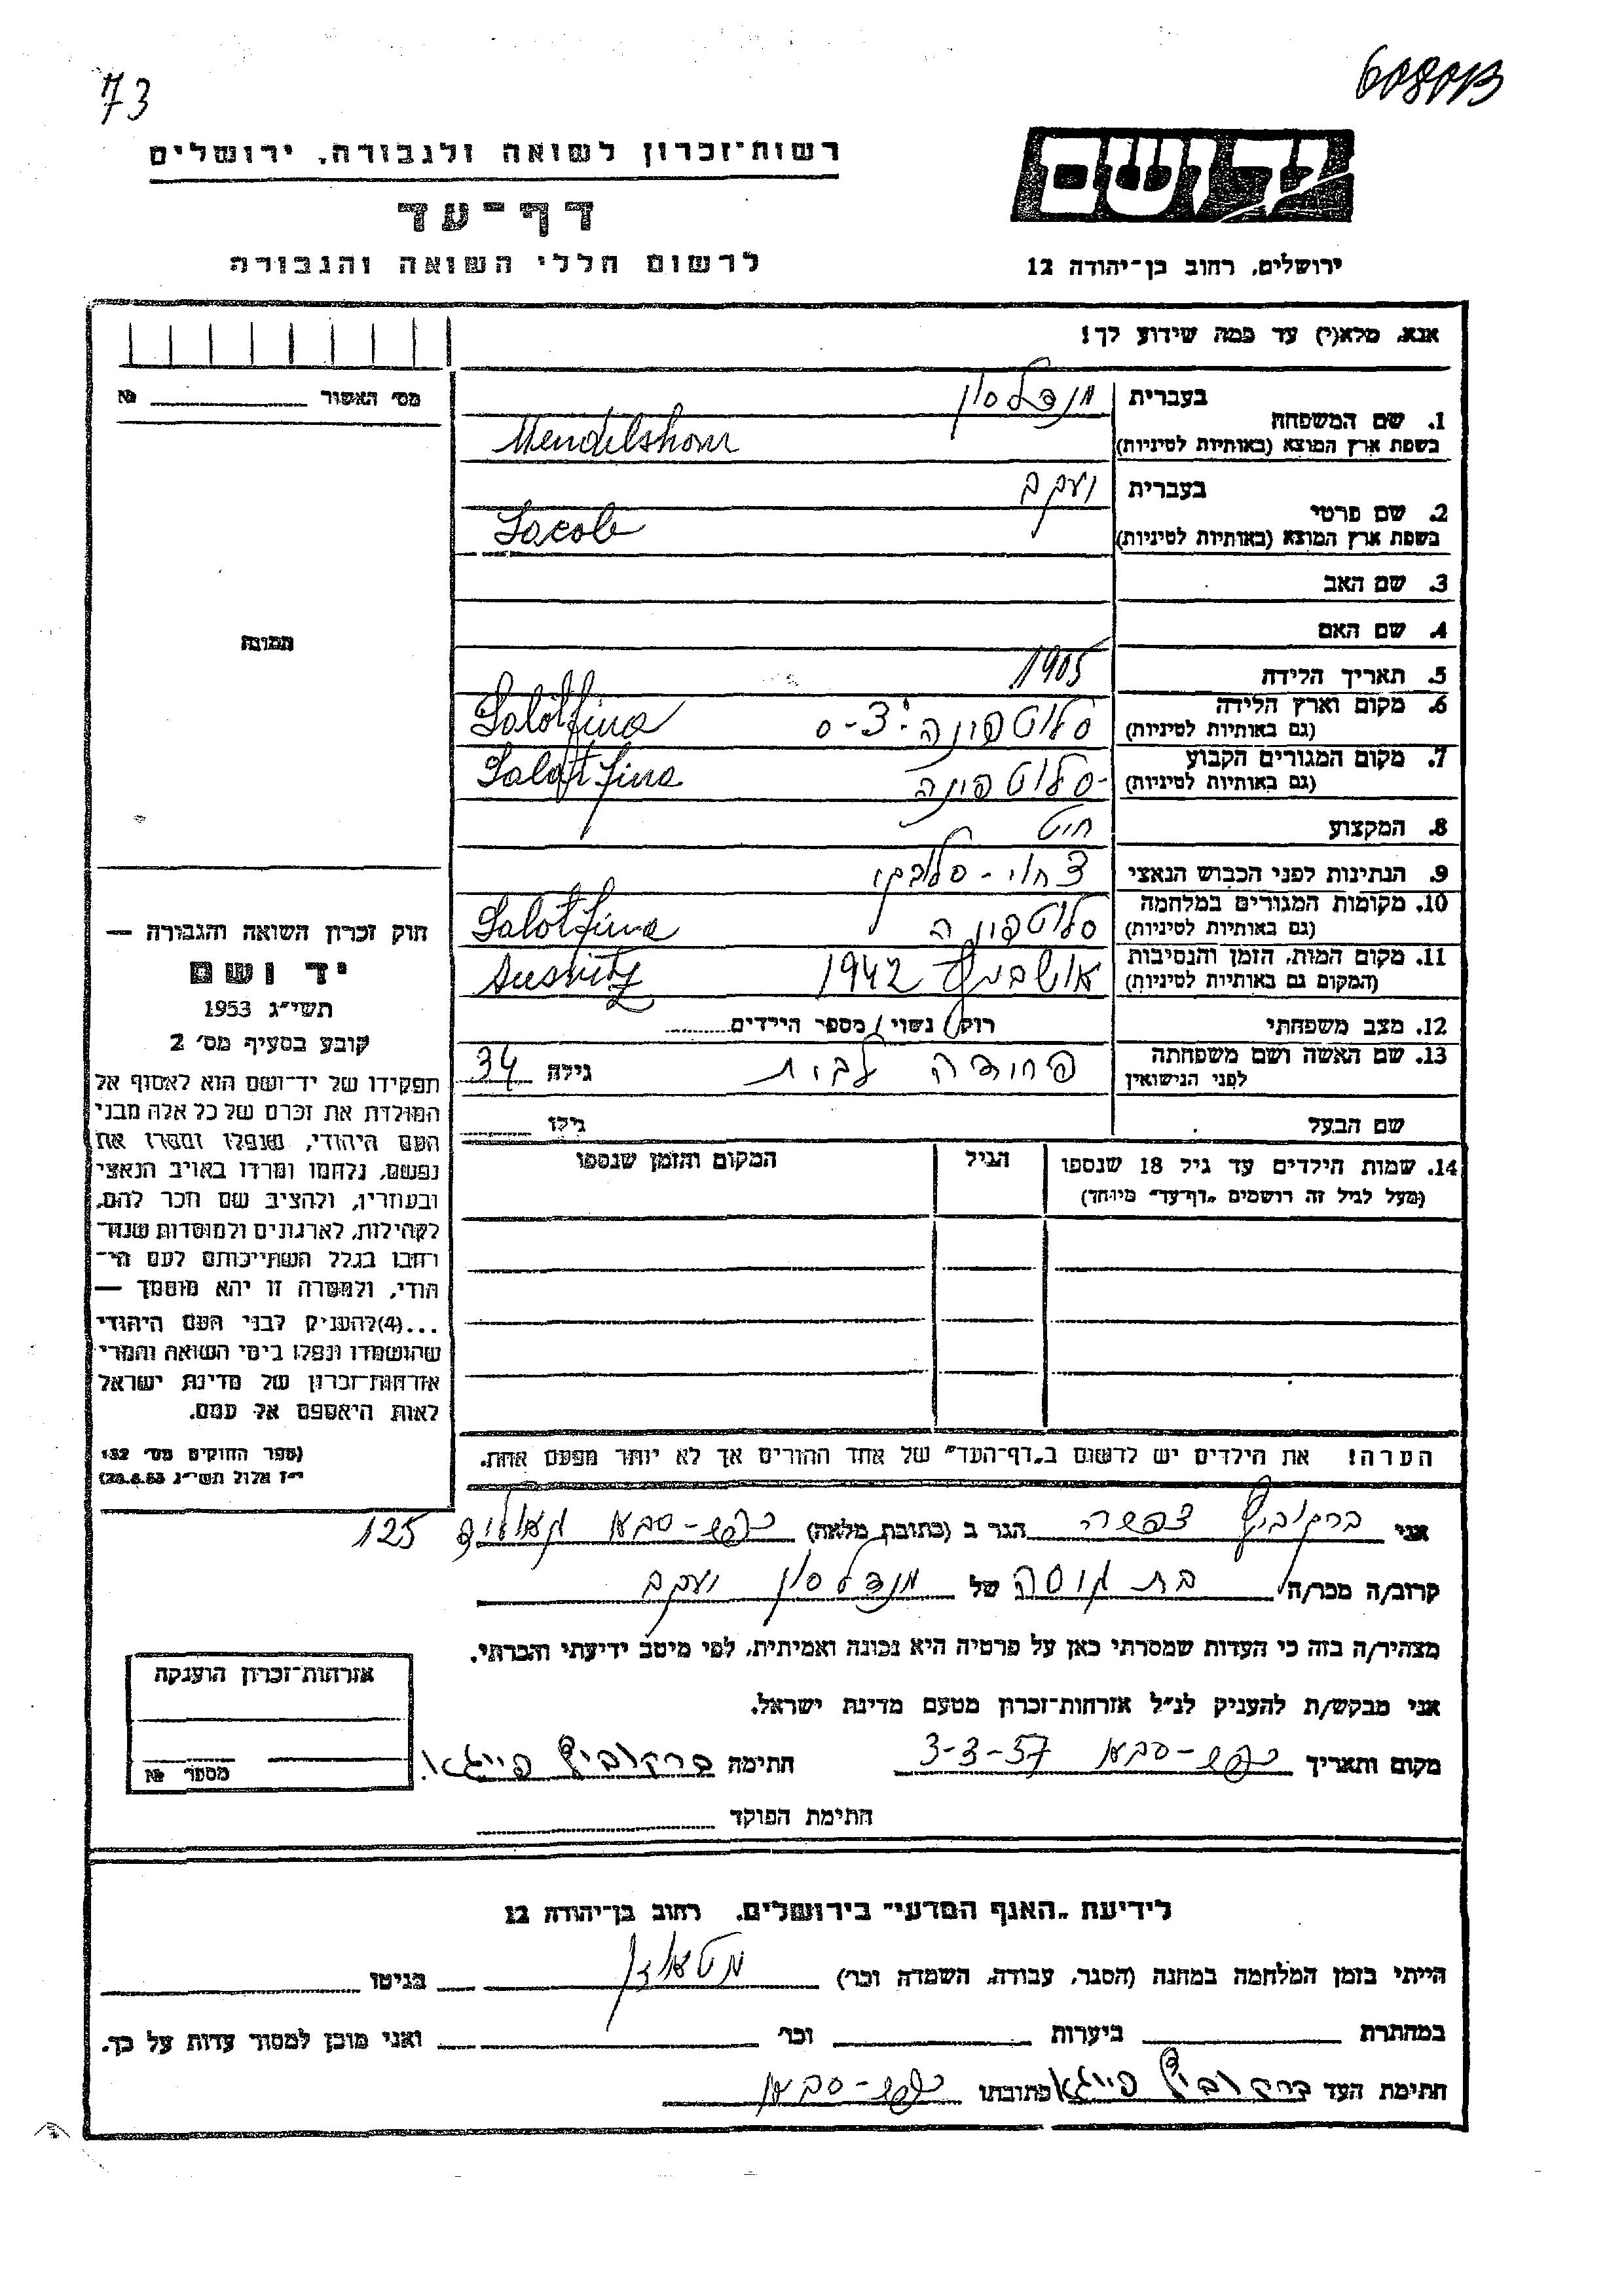 73
רשות־זכרון לשואה ולגבורה, ירושלים
דף־עד
לרשום חללי השואה והגבורה
יד ושם
ירושלים, רחוב בן־יהודה 12
אנא, מלא(י) עד כמה שידוע לך!
מס׳ האשור №
1. שם המשפחה בעברית מנדלסון
בשפת ארץ המוצא (באותיות לטיניות) Mendelshon
2. שם פרטי בעברית יעקב
בשפת ארץ המוצא (באותיות לטיניות) Jacob
3. שם האב
4. שם האם
5. תאריך הלידה 1905
6. מקום וארץ הלידה סלוטפינה צ׳-ס Salotfina
(גם באותיות לטיניות)
7. מקום המגורים הקבוע סלוטפינה Salotfina
(גם באותיות לטיניות)
8. המקצוע חיט
9. הנתינות לפני הכבוש הנאצי
10. מקומות המגורים במלחמה סלוטפינה Salotfina
(גם באותיות לטיניות)
11. מקום המות, הזמן והנסיבות אושביץ 1942 Ausvitz
(המקום גם באותיות לטיניות)
12. מצב משפחתי רוק / נשוי / מספר הילדים
13. שם האשה ושם משפחתה לבית גילה 34
לפני הנישואין
שם הבעל גילו
14. שמות הילדים עד גיל 18 שנספו הגיל המקום והזמן שנספו
(מעל לגיל זה רושמים „דף־עד" מיוחד)
הערה! את הילדים יש לרשום ב„דף־העד" של אחד ההורים אך לא יותר מפעם אחת.
תמונה
חוק זכרון השואה והגבורה —
יד ושם
תשי״ג 1953
קובע בסעיף מס׳ 2
תפקידו של יד־ושם הוא לאסוף אל
המולדת את זכרם של כל אלה מבני
העם היהודי, שנפלו ומסרו את
נפשם, נלחמו ומרדו באויב הנאצי
ובעוזריו, ולהציב שם וזכר להם,
לקהילות, לארגונים ולמוסדות שנח־
רבו בגלל השתייכותם לעם הי־
הודי, ולמטרה זו יהא מוסמך —
...(4)להעניק לבני העם היהודי
שהושמדו ונפלו בימי השואה והמרי
אזרחות־זכרון של מדינת ישראל
לאות היאספם אל עמם.
(ספר החוקים מס׳ 132
י״ז אלול תשי״ג 28.8.53)
אני ברקוביץ הגר ב (כתובת מלאה) כפר-סבא 125
קרוב/ה מכר/ה של מנדלסון יעקב
מצהיר/ה בזה כי העדות שמסרתי כאן על פרטיה היא נכונה ואמיתית, לפי מיטב ידיעתי והכרתי.
אני מבקש/ת להעניק לנ״ל אזרחות־זכרון מטעם מדינת ישראל.
מקום ותאריך כפר-סבא 3-3-57 חתימה ברקוביץ פייגא
חתימת הפוקד
אזרחות־זכרון הוענקה
מספר №
לידיעת „האגף המדעי" בירושלים, רחוב בן־יהודה 12
הייתי בזמן המלחמה במחנה (הסגר, עבודה, השמדה וכו׳) בגיטו
במחתרת ביערות וכו׳ ואני מוכן למסור עדות על כך.
חתימת העד ברקוביץ פייגא כתובתו כפר-סבא